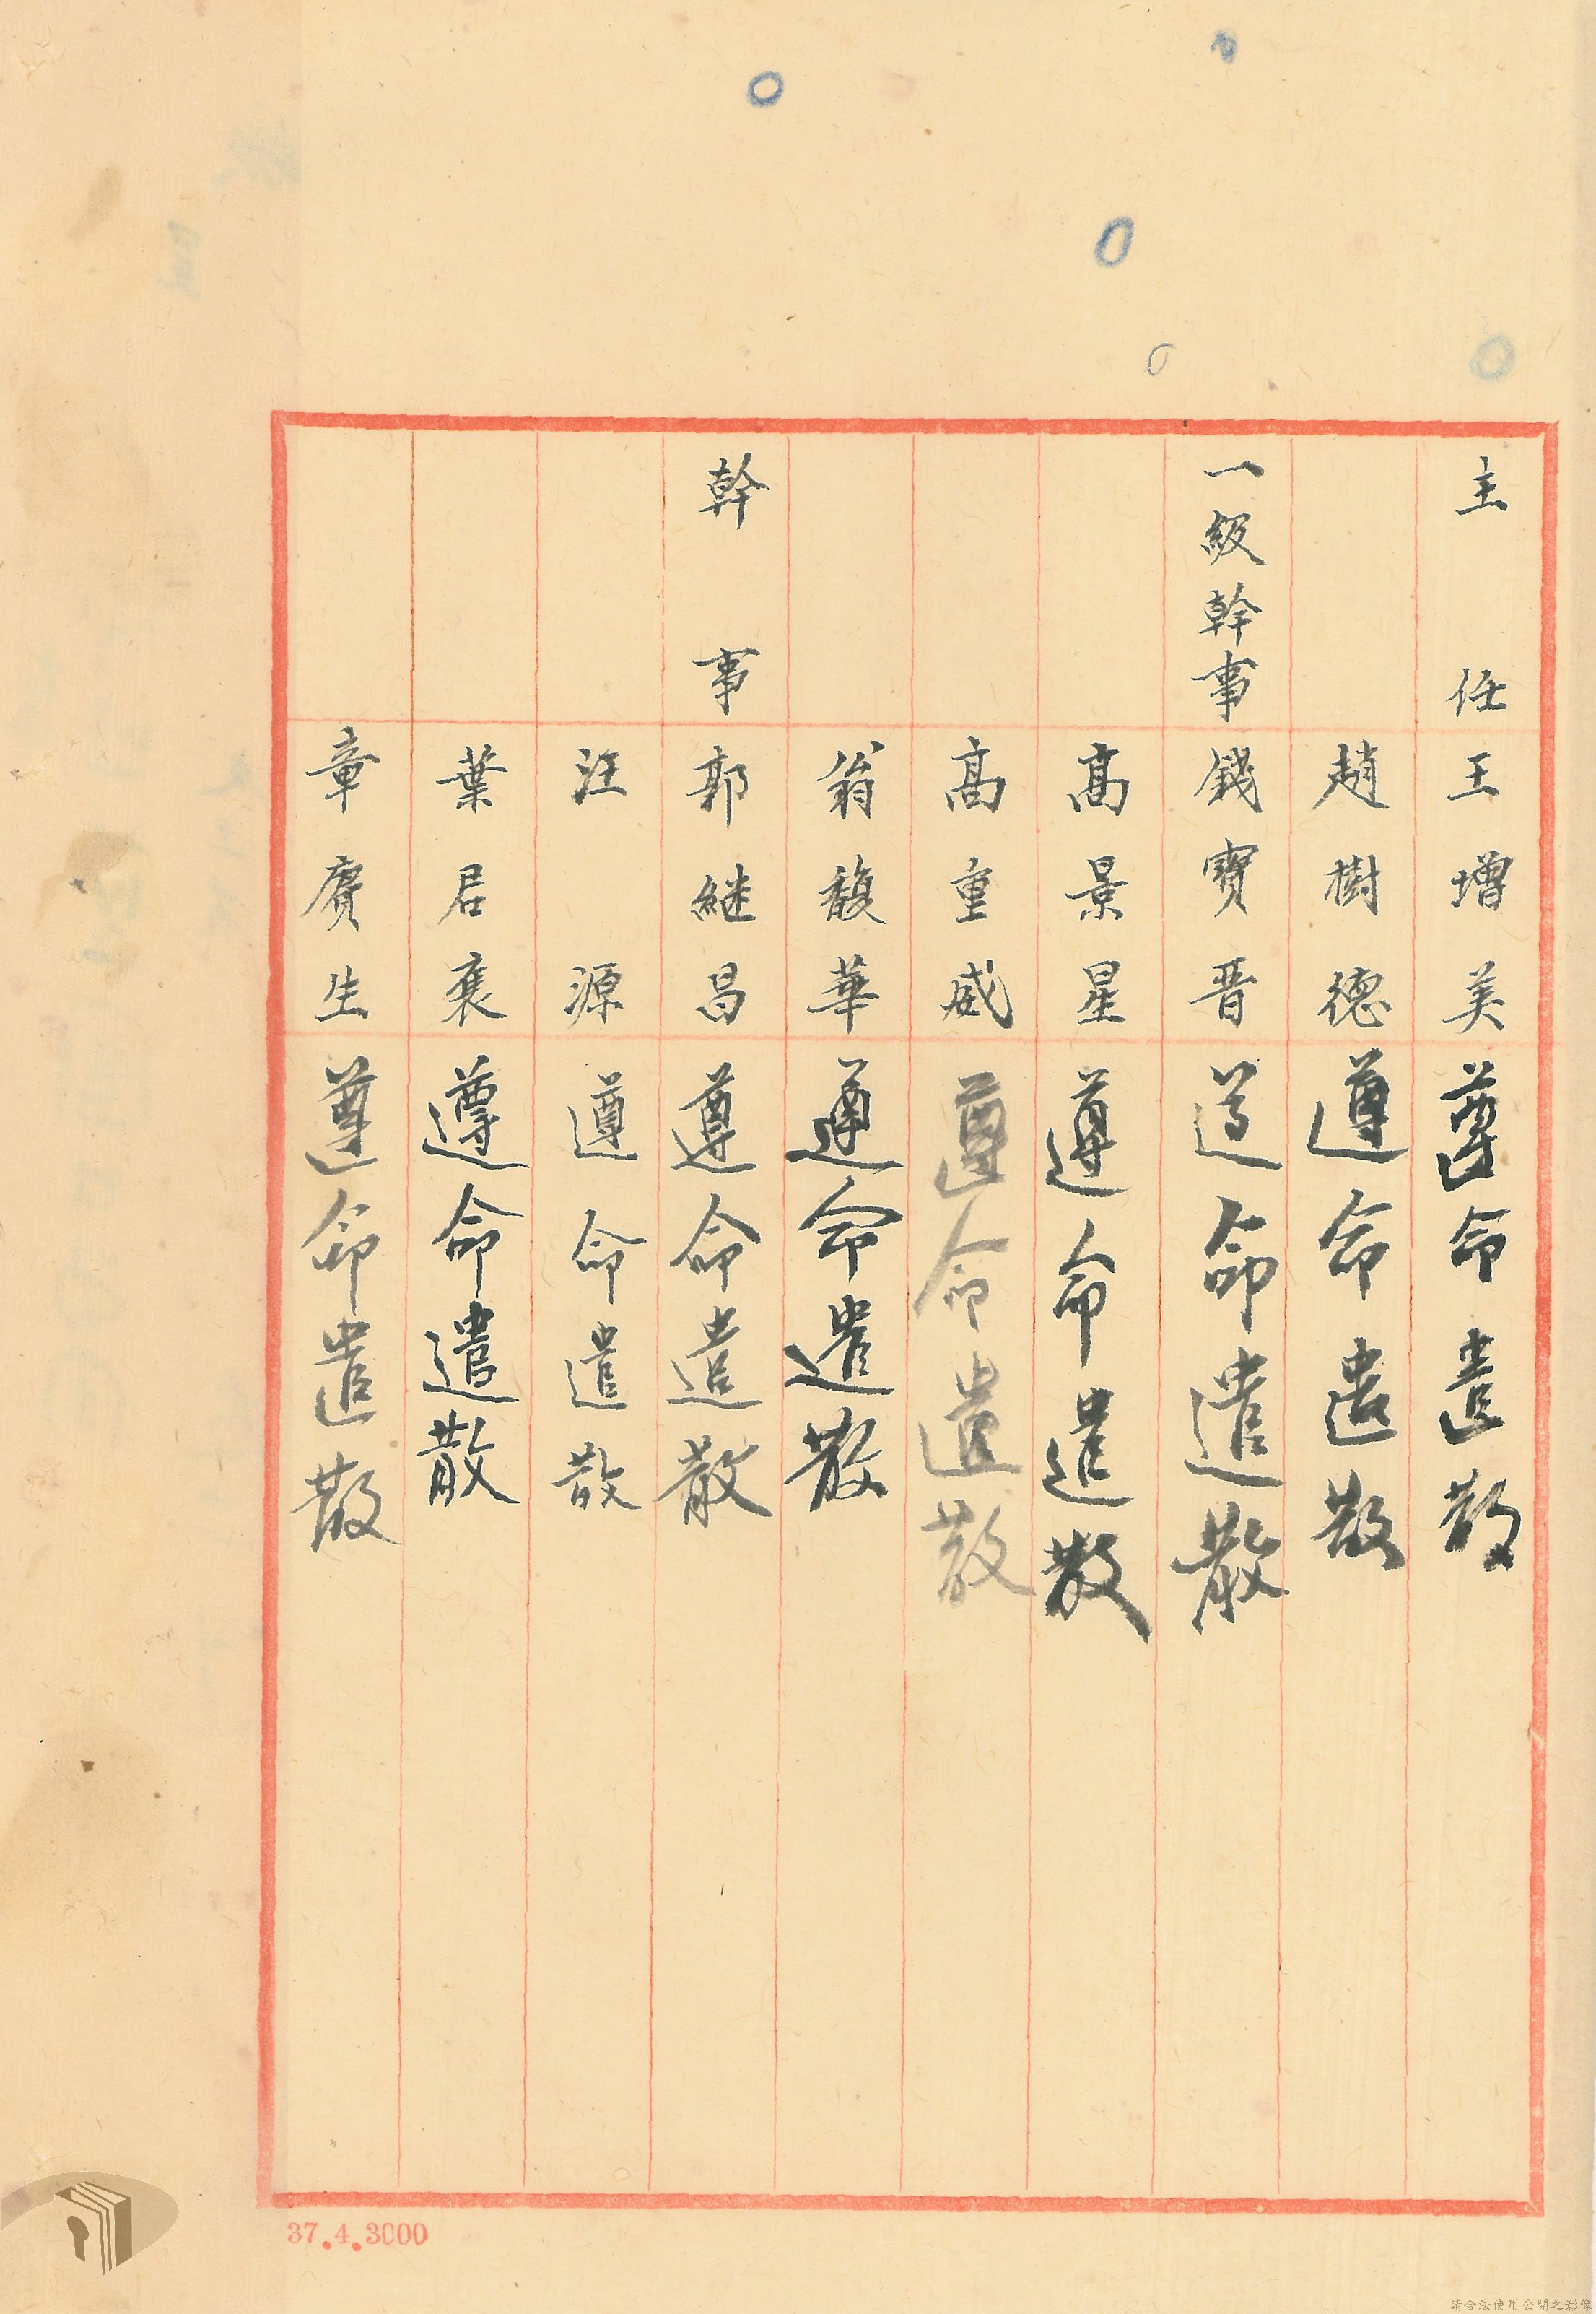 主任 王增美 遵命遣散
趙樹德 遵命遣散
一級幹事 錢寶晋 遵命遣散
髙景星 遵命遣散
髙重威 遵命遣散
翁馥華 遵命遣散
幹事 郭継昌 遵命遣散
汪源 遵命遣散
葉君襄 遵命遣散
章賡生 遵命遣散
37.4.3000
請合法使用公開之影像